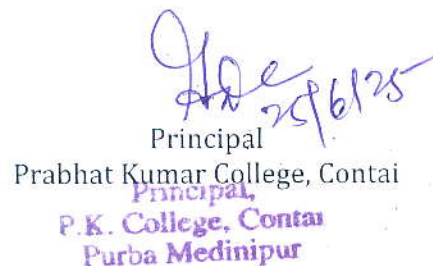 25/6/25
Principal
Prabhat Kumar College, Contai
Principal,
P.K. College, Contai
Purba Medinipur